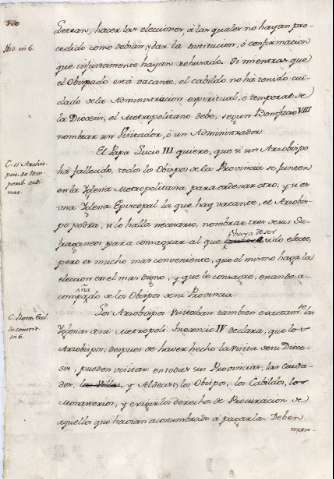 Letran, hacer las elecciones, a las quales no hayan pro-
cedido como debian, y dar la institucion, ó confirmacion
que injustamente hayan rehusado. Si mientras que
el Obispado está vacante, el cabildo no há tenido cui-
dado de la Administracion espiritual, ó temporal de
la Diocesis, el Metropolitano debe, segun Bonifacio VIII
nombrar un Visitador, ó un Administrador.
El Papa Lucio III quiere, que si un Arzobispo
há fallecido, todos los Obispos de la Provincia se junten
en la Yglesia Metropolitana para ordenar otro, y si es
una Yglesia Episcopal la que hay vacante, el Arzobis-
po podra, si lo halla necesario, nombrar tres de sus Su-
fraganeos para consagrar al que haya de ser electo,
pero es mucho mas conveniente, que el mismo haga la
eleccion en el mas digno, y que lo consagre, estando a-
compañado de los Obispos de su Provincia.
Los Arzobispos visitaban tambien exactamente las
Yglesias de su Metropoli. Inocencio IV declara, que los
Arzobispos, despues de haver hecho la visita de su Dioce-
sis, pueden visitar en todas sus Provincias, las Ciuda-
des, las Villas, y Aldeas, los Obispos, los Cabildos, los
Monasterios, y exigir los derechos de Procuracion de
aquellos que havian acostumbrado a pagarla. Deben